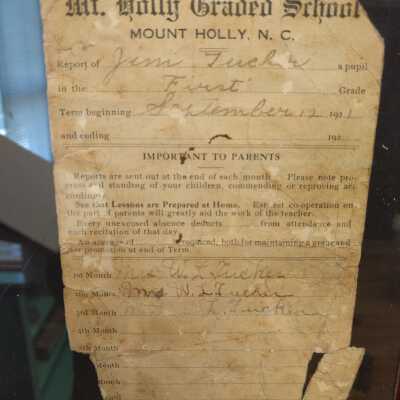 Mt. Holly Graded School
MOUNT HOLLY, N. C.
Report of Jim Tucker a pupil
in the First Grade
Term beginning September 12 1921
and ending 192
IMPORTANT TO PARENTS
Reports are sent out at the end of each month Please note pro-
gress and standing of your children, commending or reproving ac-
cordingly.
See that Lessons are Prepared at Home. Earnest co-operation on
the part of parents will greatly aid the work of the teacher.
Every unexcused absence deducts from attendance and
each recitation of that day.
An average of required, both for maintaining a grade and
for promotion at end of Term.
1st Month Mrs W. L. Tucker
2nd Month Mrs W. L. Tucker
3rd Month L. Tucker
4th Month
Month
Month
Month